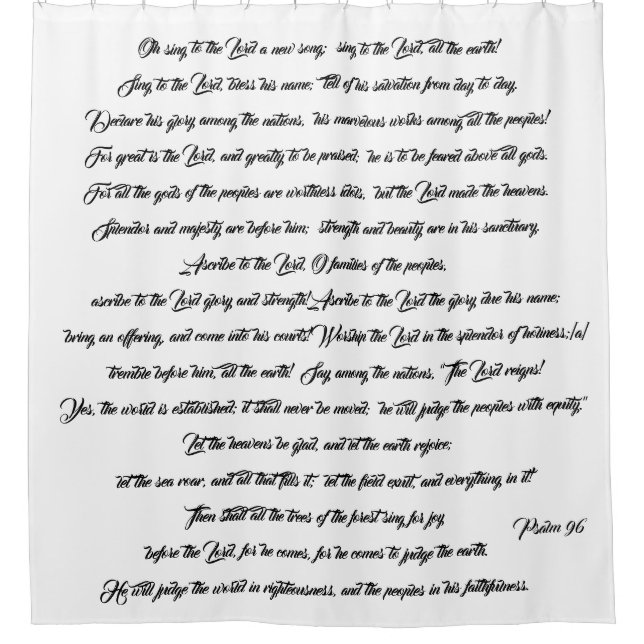 Oh sing to the Lord a new song; sing to the Lord, all the earth!
Sing to the Lord, bless his name; tell of his salvation from day to day.
Declare his glory among the nations, his marvelous works among all the peoples!
For great is the Lord, and greatly to be praised; he is to be feared above all gods.
For all the gods of the peoples are worthless idols, but the Lord made the heavens.
Splendor and majesty are before him; strength and beauty are in his sanctuary.
Ascribe to the Lord, O families of the peoples,
ascribe to the Lord glory and strength!Ascribe to the Lord the glory due his name;
bring an offering, and come into his courts!Worship the Lord in the splendor of holiness;[a]
tremble before him, all the earth! Say among the nations, "The Lord reigns!
Yes, the world is established; it shall never be moved; he will judge the peoples with equity."
Let the heavens be glad, and let the earth rejoice;
let the sea roar, and all that fills it; let the field exult, and everything in it!
Then shall all the trees of the forest sing for joy
before the Lord, for he comes, for he comes to judge the earth.
He will judge the world in righteousness, and the peoples in his faithfulness.
Psalm 96